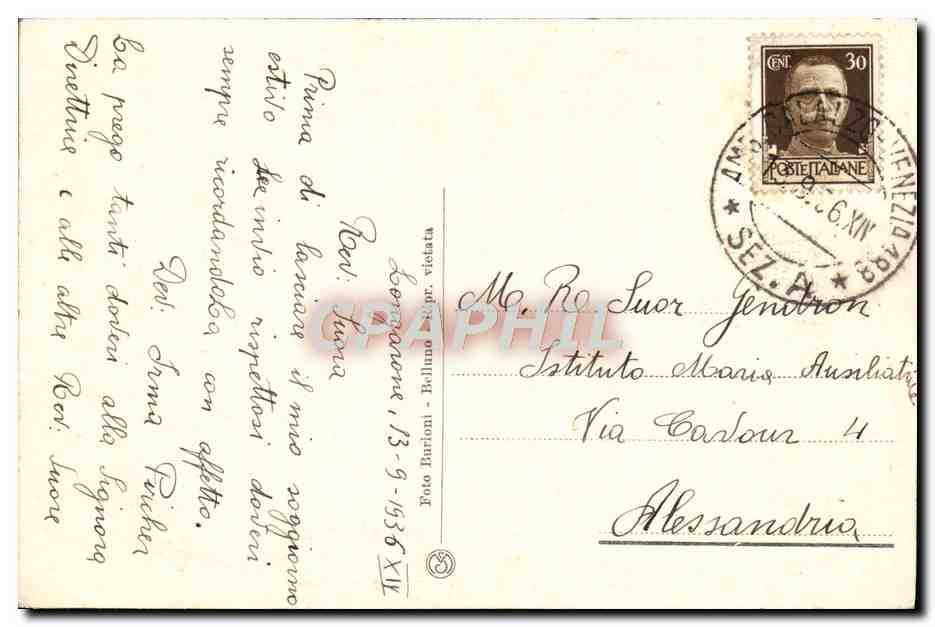 Longarone, 13-9-1936 XIV
Rev. Suora
Prima di lasciare il mio soggiorno
estivo Le invio rispettosi doveri
sempre ricordandoLa con affetto.
Dev. Irma Pircher
La prego tanti doveri alla Signora
Direttrice e alle altre Rev. Suore
Foto Burloni - Belluno - Ripr. vietata
CENT. 30
POSTE ITALIANE
VENEZIA 498
* SEZ. A *
M. Re Suor Gendron
Istituto Maria Ausiliatrice
Via Cavour 4
Alessandria
CPAPHIL